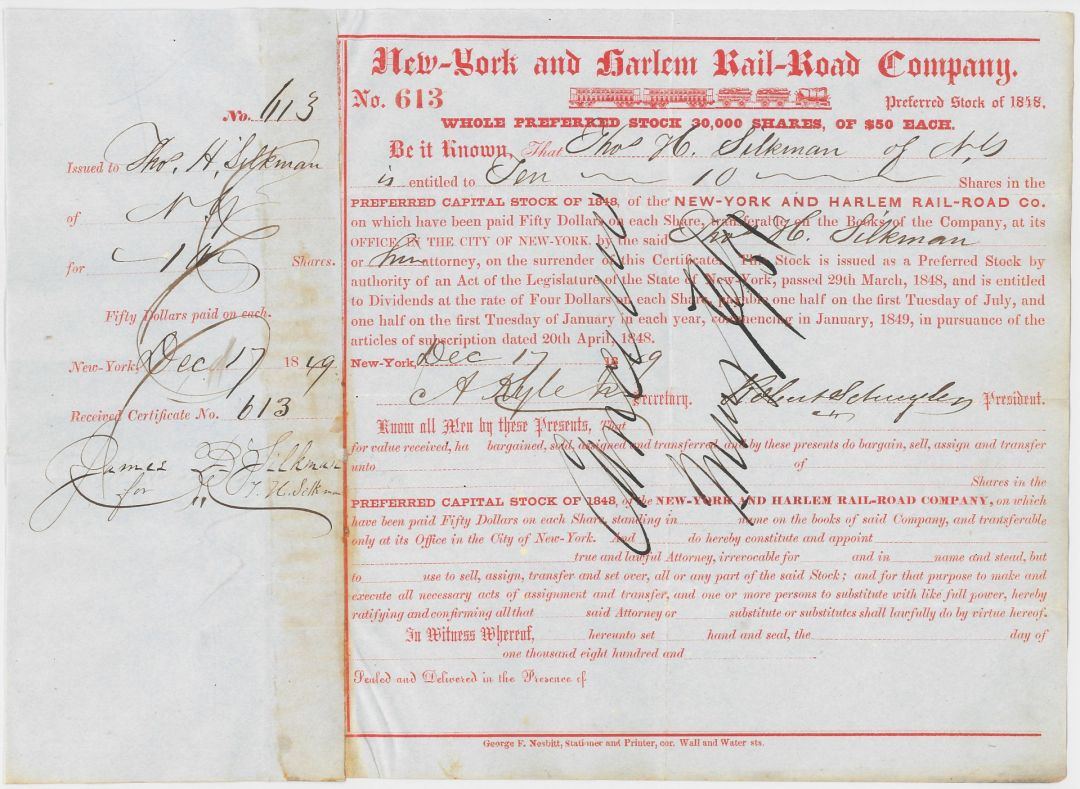 No. 613
Issued to Thos. H. Silkman
of N.Y.
for 10 Shares.
Fifty Dollars paid on each.
New-York, Dec. 17 1849.
Received Certificate No. 613
James D Silkman
for T. H. Silkman
New-York and Harlem Rail-Road Company.
No. 613
Preferred Stock of 1848.
WHOLE PREFERRED STOCK 30,000 SHARES, OF $50 EACH.
Be it Known, That Thos H. Silkman of N.Y
is entitled to Ten 10 Shares in the
PREFERRED CAPITAL STOCK OF 1848, of the NEW-YORK AND HARLEM RAIL-ROAD CO.
on which have been paid Fifty Dollars on each Share, transferable on the Books of the Company, at its
OFFICE IN THE CITY OF NEW-YORK, by the said Thos H. Silkman
or his attorney, on the surrender of this Certificate. This Stock is issued as a Preferred Stock by
authority of an Act of the Legislature of the State of New-York, passed 29th March, 1848, and is entitled
to Dividends at the rate of Four Dollars on each Share, payable one half on the first Tuesday of July, and
one half on the first Tuesday of January in each year, commencing in January, 1849, in pursuance of the
articles of subscription dated 20th April, 1848.
New-York, Dec 17 1849
A Kyle Jr secretary. Robert Schuyler President.
Know all Men by these Presents, That
for value received, ha bargained, sold, assigned and transferred, and by these presents do bargain, sell, assign and transfer
unto of
Shares in the
PREFERRED CAPITAL STOCK OF 1848, of the NEW-YORK AND HARLEM RAIL-ROAD COMPANY, on which
have been paid Fifty Dollars on each Share, standing in name on the books of said Company, and transferable
only at its Office in the City of New-York. And do hereby constitute and appoint
true and lawful Attorney, irrevocable for and in name and stead, but
to use to sell, assign, transfer and set over, all or any part of the said Stock; and for that purpose to make and
execute all necessary acts of assignment and transfer, and one or more persons to substitute with like full power, hereby
ratifying and confirming all that said Attorney or substitute or substitutes shall lawfully do by virtue hereof.
In Witness Whereof, hereunto set hand and seal, the day of
one thousand eight hundred and
Sealed and Delivered in the Presence of
George F. Nesbitt, Stationer and Printer, cor. Wall and Water sts.